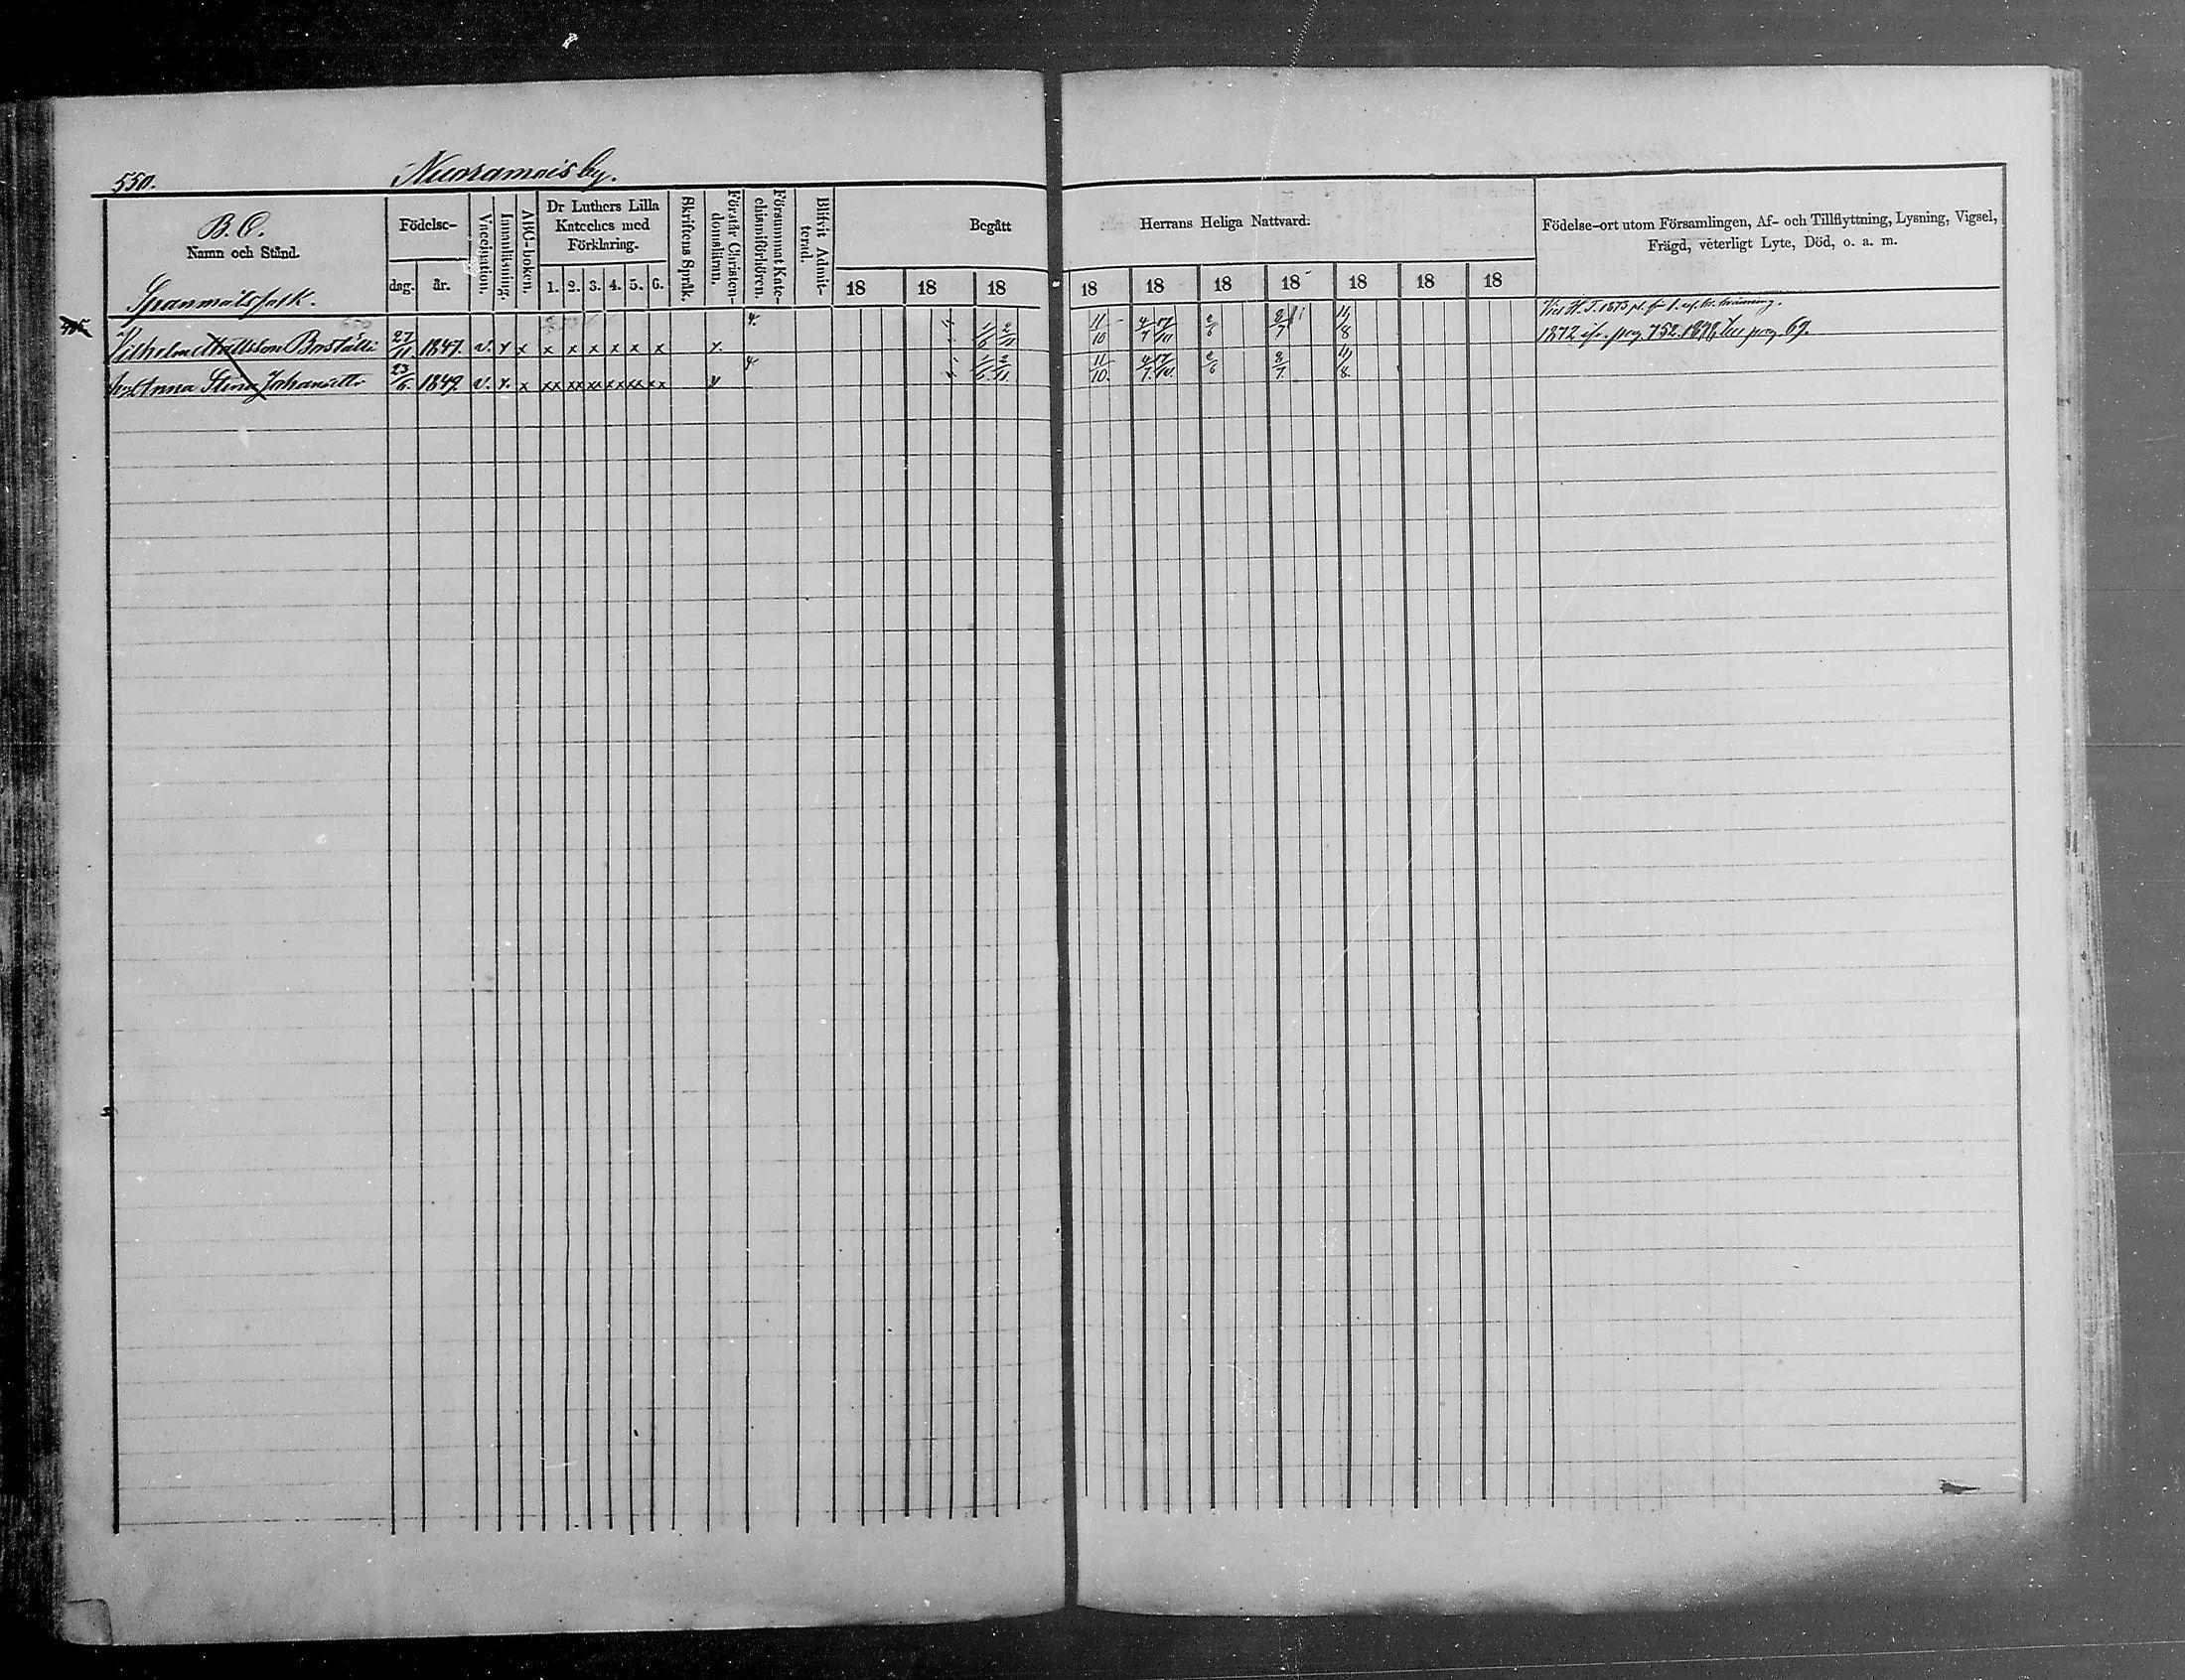 550.
Nuoramois by.
B. C.
Namn och Stånd.
Födelse-
dag.
år.
Vaccination.
Innanläsning.
ABC-boken.
Dr Luthers Lilla
Kateches med
Förklaring.
1. 2. 3. 4. 5. 6.
Skriftens Språk.
Förstår Christen-
domsläran.
Försummat Kate-
chismiförhören.
Blifvit Admit-
terad.
Begått
Herrans Heliga Nattvard.
18 18 18 18 18 18 18 18 18 18
Födelse-ort utom Församlingen, Af- och Tillflyttning, Lysning, Vigsel,
Frägd, veterligt Lyte, Död, o. a. m.
Spanmålsfolk.
4.
Vid H. T. 1873
Vilhelm Mattsson Boställi 27/11 1847. v. x x x x x x x x x. 1/6 2/11 11/10 4/7 17/11 2/6 2/7 11/8 1872 pag. 752. 1878, pag. 67.
4.
Anna Stina Johansdtr 23/6. 1849. v. x. x xx xx xx xx xx xx 1/6. 2/11. 11/10. 4/7. 2/6 2/7. 11/8.